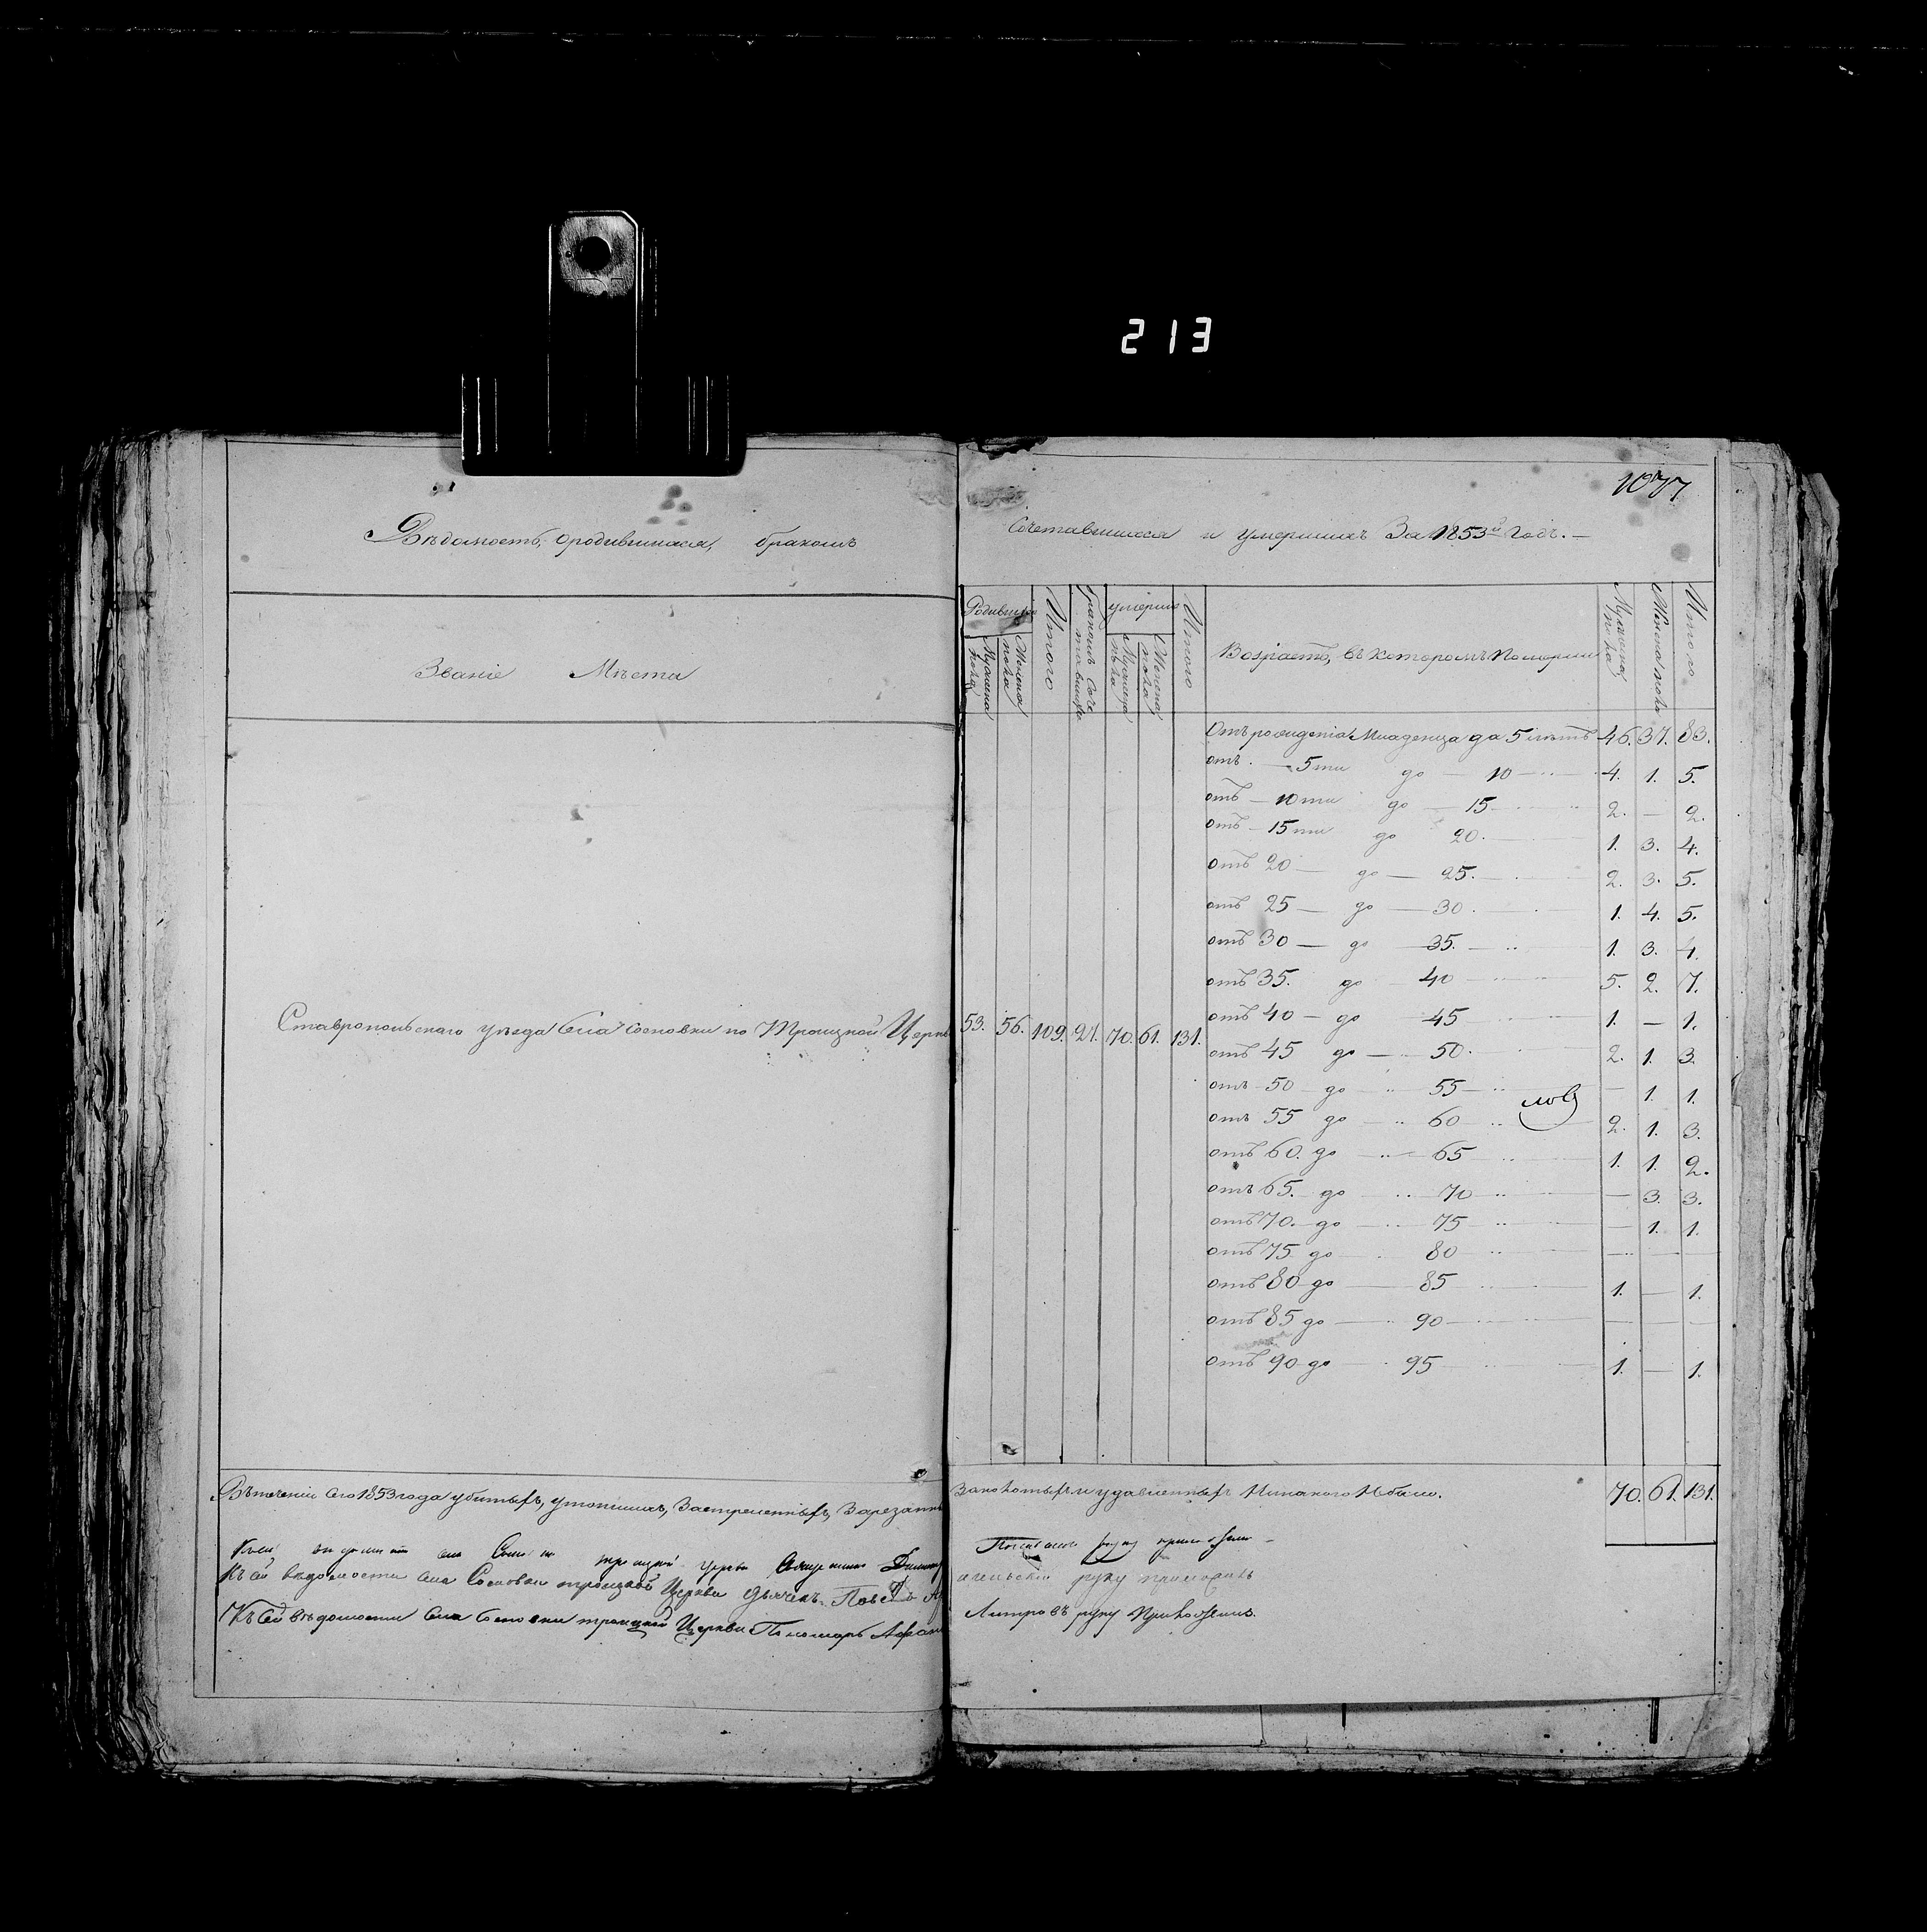 213
1077
Вѣдомость, ородившихся, бракомъ сочетавшихся и умершихъ За 1853й Годъ. —
Званіе Мѣста
Родившихся
Мужеска пола
Женска пола
Итого
Бракомъ Соче тавшихся
умерших
Мужеска пола
Женска пола
Итого
Возрастъ, въ которомъ Померли
Мужеска пола
Женска пола
Итого
Ставропольскаго уѣзда Села Сосновки по Троицкой Церкви 53. 56. 109. 21. 70. 61. 131.
Отъ рожденія Младенца до 5 лѣтъ 46. 37. 83.
отъ — 5ти до — 10 4. 1. 5.
отъ — 10ти до — 15 2. — 2.
отъ — 15ти до 20. 1. 3. 4.
отъ 20 — до — 25. 2. 3. 5.
отъ 25 — до — 30. 1. 4. 5.
отъ 30 — до — 35. 1. 3. 4.
отъ 35. до 40 5. 2. 7.
отъ 40 — до 45 1. — 1.
отъ 45 до — 50. 2. 1. 3.
отъ 50 до 55 — 1. 1.
отъ 55 до — 60 2. 1. 3.
отъ 60. до — 65 1. 1. 2.
отъ 65. до 70 — 3. 3.
отъ 70. до — 75 — 1. 1.
отъ 75 до — 80 — —
отъ 80 до — 85 1. — 1.
отъ 85 до — 90 — — —
отъ 90 до — 95 1. — 1.
70. 61. 131.
Втеченіи сего 1853 года убитыхъ, утопшихъ, Застреленныхъ, Зарезанн Заколотыхъ и удавленныхъ Никакого Небыло.
Къ сей вѣдомости села Сосновки троицкой церкви Священникъ руку приложилъ
Къ сей вѣдомости села Сосновки троицкой Церкви дьячекъ руку приложилъ
Къ сей вѣдомости села Сосновки троицкой Церкви Пономарь руку Приложилъ.